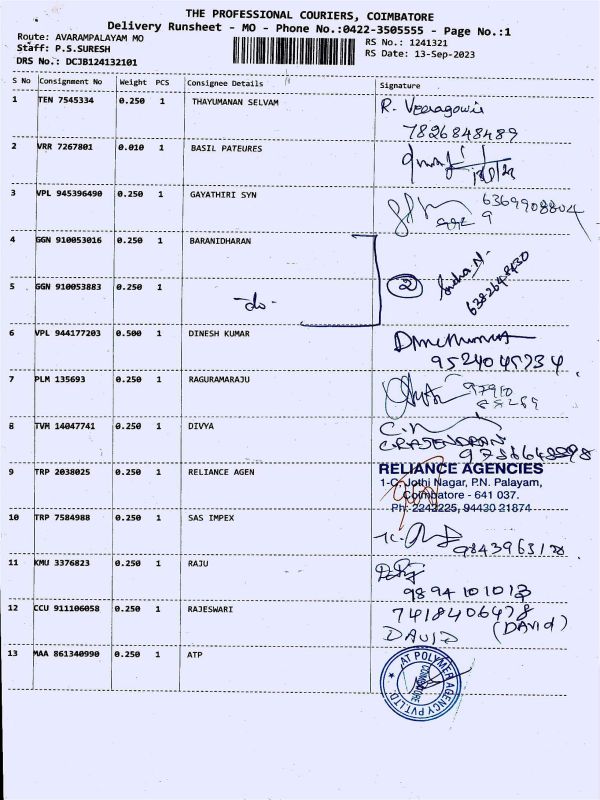 THE PROFESSIONAL COURIERS, COIMBATORE
Delivery Runsheet - MO - Phone No.:0422-3505555 - Page No.:1
Route: AVARAMPALAYAM MO RS No.: 1241321
Staff: P.S.SURESH RS Date: 13-Sep-2023
DRS No.: DCJB124132101
S No Consignment No Weight PCS Consignee Details Signature
1 TEN 7545334 0.250 1 THAYUMANAN SELVAM R. Veeragowri
7826848489
2 VRR 7267801 0.010 1 BASIL PATEURES
3 VPL 945396490 0.250 1 GAYATHIRI SYN 6369908804
4 GGN 910053016 0.250 1 BARANIDHARAN
5 GGN 910053883 0.250 1 -do- 2
6 VPL 944177203 0.500 1 DINESH KUMAR
9524045734
7 PLM 135693 0.250 1 RAGURAMARAJU 97910
8 TVM 14047741 0.250 1 DIVYA
C.RAJENDRAN
9 TRP 2038025 0.250 1 RELIANCE AGEN RELIANCE AGENCIES
1-C, Jothi Nagar, P.N. Palayam,
Coimbatore - 641 037.
Ph: 2242225, 94430 21874
10 TRP 7584988 0.250 1 SAS IMPEX
11 KMU 3376823 0.250 1 RAJU
9894101013
12 CCU 911106058 0.250 1 RAJESWARI 7418406478
DAVID (DAVID)
13 MAA 861340990 0.250 1 ATP AT POLYMER AGENCY PVT LTD
COIMBATORE